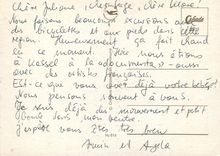 chère Juliane, cher Serge, chère Marie!
Nous faisons beaucoup excursions avec
des bicyclettes et aux pieds dans cette
région. Heureusement ça fait chaud
en ce moment. Hier nous étions
à Kassel à la "documenta" - aussi
avec des artistes françaises.
Est-ce que vous avez déjà votre bébé?
Nous pensons souvent à vous.
Je sens déjà du mouvement et petit
dans mon ventre.
J'espère vous très très bien
et Angla